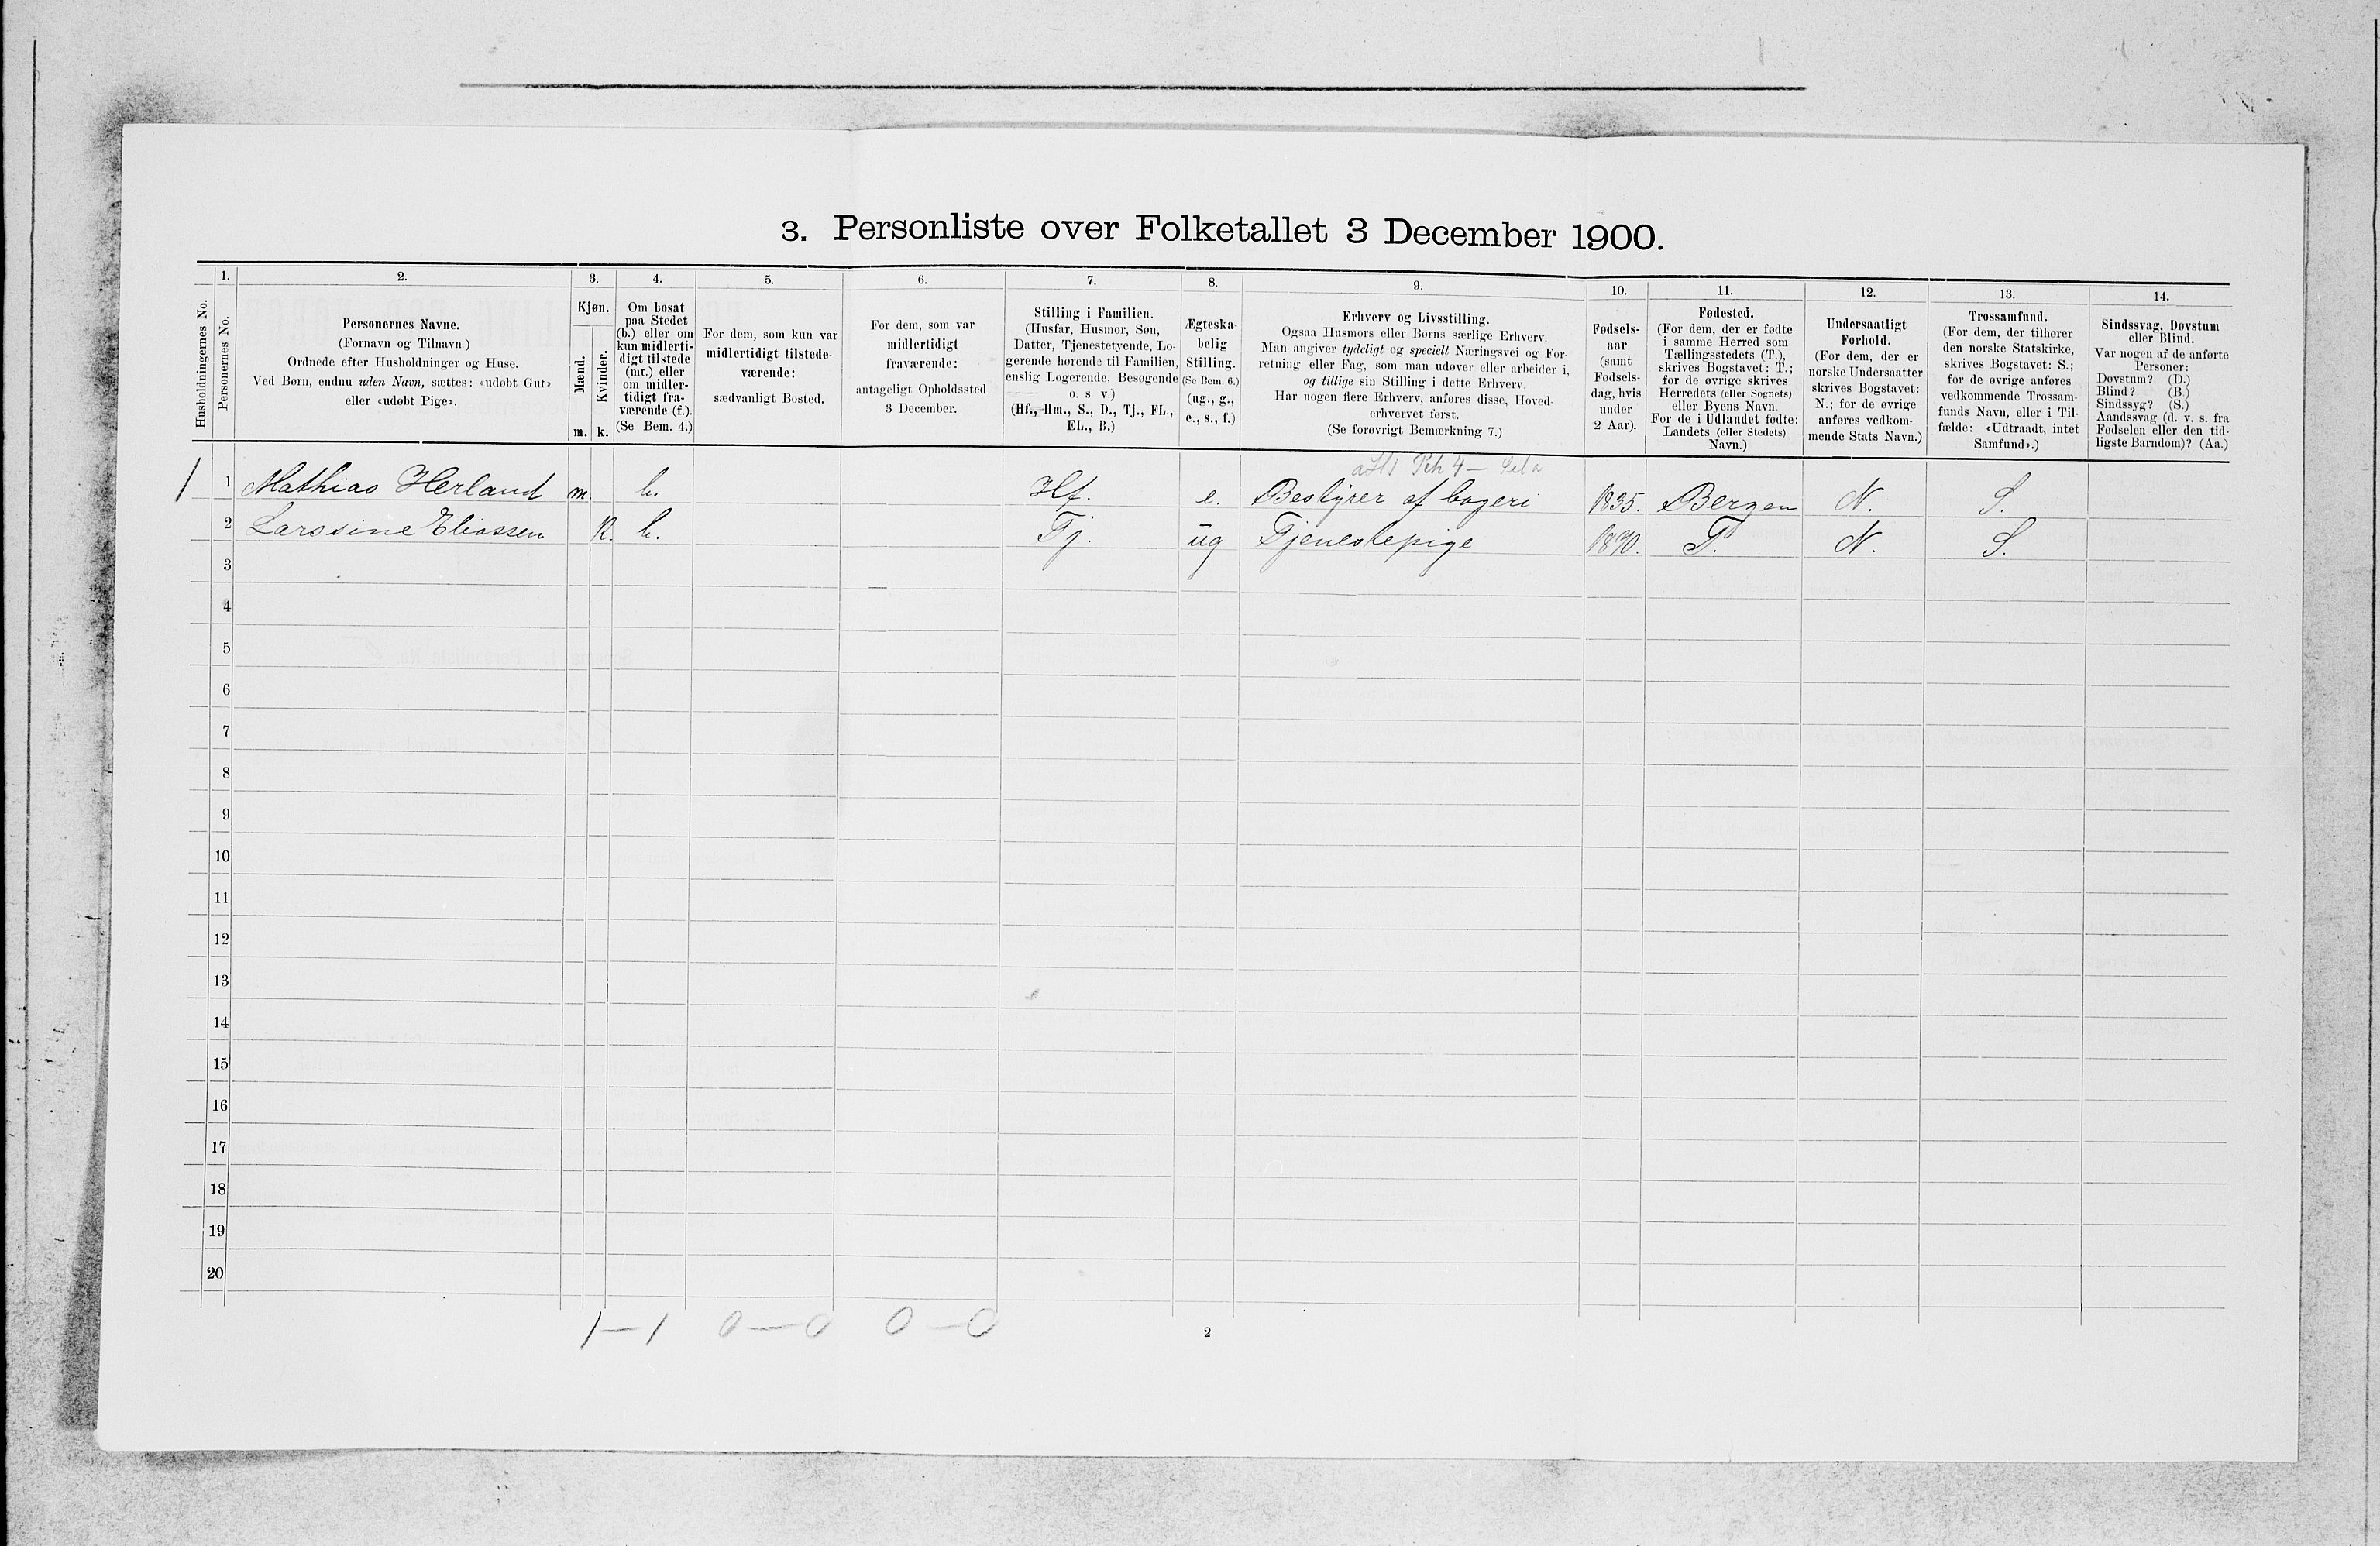 3. Personliste over Folketallet 3 December 1900.
Husholdningernes No.
1.
Personernes No.
2.
Personernes Navne.
(Fornavn og Tilnavn)
Ordnede efter Husholdninger og Huse.
Ved Børn, endnu uden Navn, sættes: «udøbt Gut»
eller «udøbt Pige».
3.
Kjøn.
Mænd.
Kvinder.
m. k.
4.
Om bosat
paa Stedet
(b.) eller om
kun midlerti-
digt tilstede
(mt.) eller
om midler-
tidigt fra-
værende (f.).
(Se Bem. 4.)
5.
For dem, som kun var
midlertidigt tilstede-
værende:
sædvanligt Bosted.
6.
For dem, som var
midlertidigt
fraværende:
antageligt Opholdssted
3 December.
7.
Stilling i Familien.
(Husfar, Husmor, Søn,
Datter, Tjenestetyende, Lo-
gerende hørende til Familien,
enslig Logerende, Besøgende
o. s v.)
(Hf., Hm., S., D., Tj., FL.,
EL., B.)
8.
Ægteska-
belig
Stilling.
(Se Bem. 6.)
(ug., g.,
e., s., f.)
9.
Erhverv og Livsstilling.
Ogsaa Husmors eller Børns særlige Erhverv.
Man angiver tydeligt og specielt Næringsvei og For-
retning eller Fag, som man udøver eller arbeider i,
og tillige sin Stilling i dette Erhverv.
Har nogen flere Erhverv, anføres disse, Hoved-
erhvervet først.
(Se forøvrigt Bemærkning 7.)
10.
Fødsels-
aar
(samt
Fødsels-
dag, hvis
under
2 Aar).
11.
Fødested.
(For dem, der er fødte
i samme Herred som
Tællingsstedets (T.),
skrives Bogstavet: T.;
for de øvrige skrives
Herredets (eller Sognets)
eller Byens Navn.
For de i Udlandet fødte:
Landets (eller Stedets)
Navn.)
12.
Undersaatligt
Forhold.
(For dem, der er
norske Undersaatter
skrives Bogstavet:
N.; for de øvrige
anføres vedkom-
mende Stats Navn.)
13.
Trossamfund.
(For dem, der tilhører
den norske Statskirke,
skrives Bogstavet: S.;
for de øvrige anføres
vedkommende Trossam-
funds Navn, eller i Til-
fælde: «Udtraadt, intet
Samfund».)
14.
Sindssvag, Døvstum
eller Blind.
Var nogen af de anførte
Personer:
Døvstum? (D.)
Blind? (B.)
Sindssyg? (S.)
Aandssvag (d. v. s. fra
Fødselen eller den tid-
ligste Barndom)? (Aa.)
1 1 Mathias Herland m. b. Hf. e. Bestyrer af bageri 1835. Bergen N. S.
2 Larssine Eliassen k. b. Tj. ug Tjenestepige 1890. T. N. S.
3
4
5
6
7
8
9
10
11
12
13
14
15
16
17
18
19
20
1—1 0—0 0—0
2